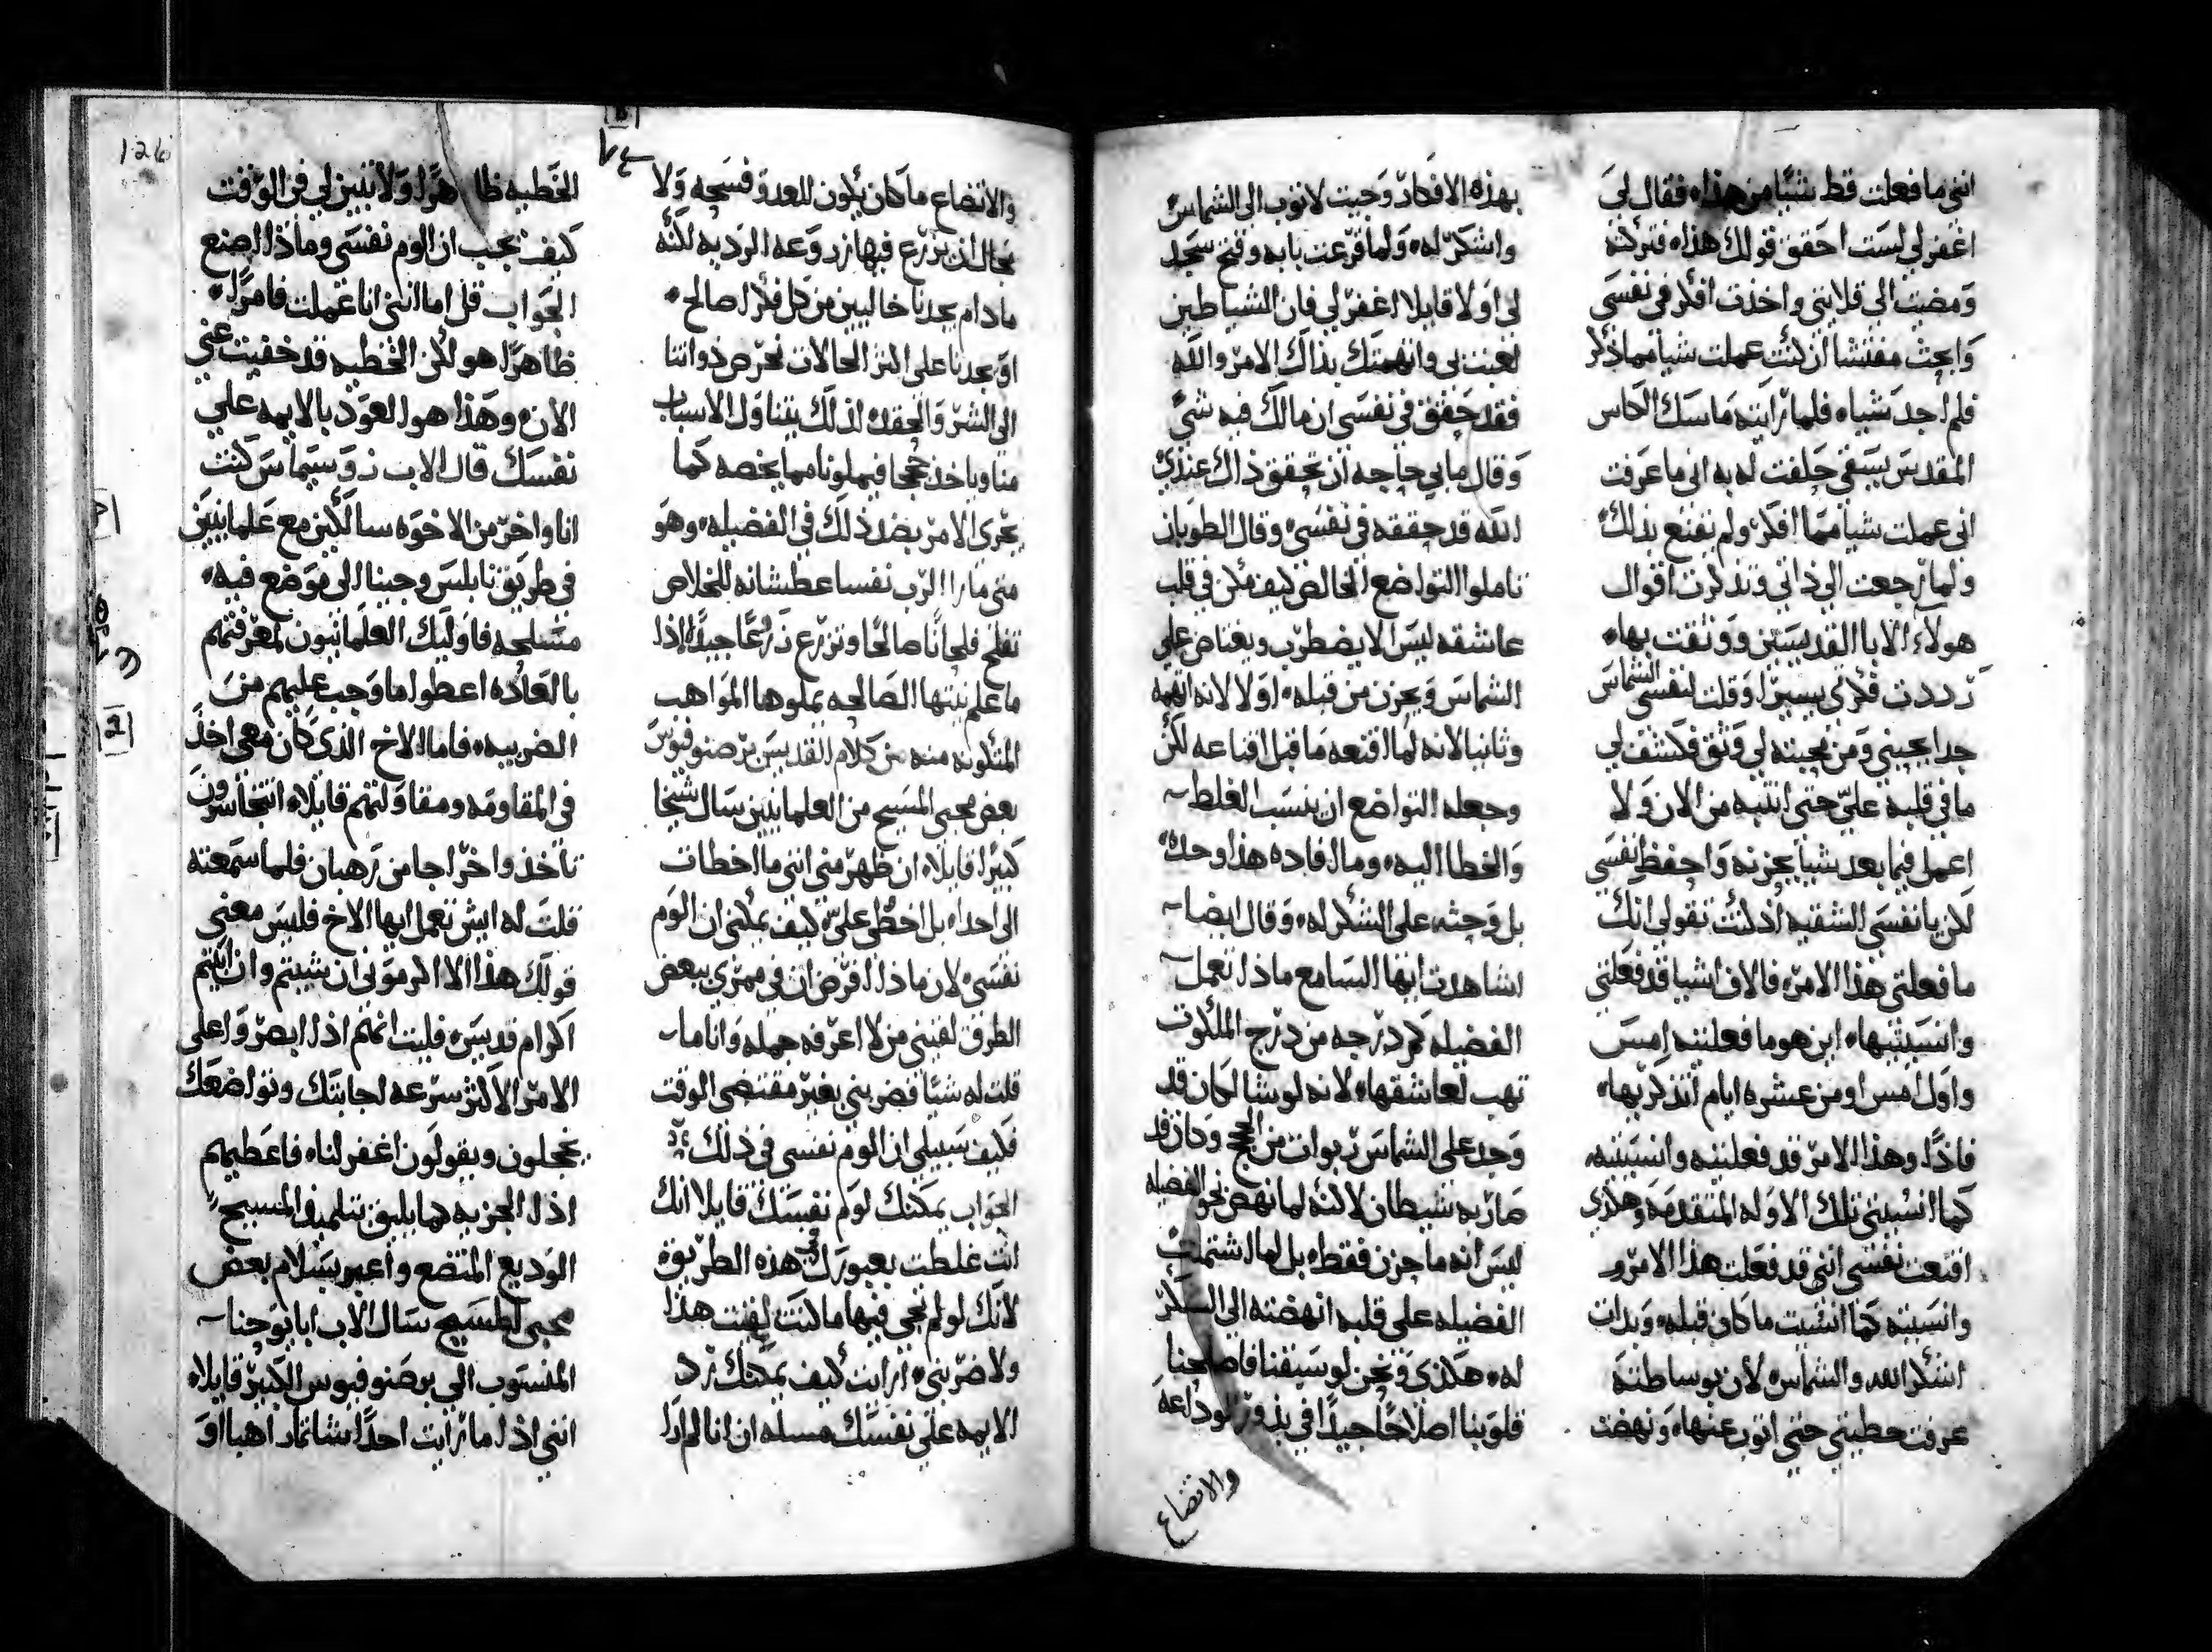 انني ما فعلت قط شيًا من هذا، فقال لي
اغفر لي لست احقق قولك هذا، فتركته
ومضيت الي قلايتي واخذت افكر في نفسي
وابحث مفتشا ان كنت عملت شيا مما ذكر
فلم اجد شيا، فلما رايته ماسك الكاس
المقدس يسقي حلفت له به اني ما عرفت
اني عملت شيا مما افكر ولم يقنع بذلك،
ولما رجعت الي ذاتي وتذكرت اقوال
هولاء الابا القديسين ووثقت بها،
رددت فكري يسيرا، وقلت لنفسي الشماس
جدا يحبني ومن محبته لي وثق فكشف لي
ما في قلبه عليّ حتي انتبه من الان ولا
اعمل فيما بعد شيا يحزنه واحفظ نفسي
لكن يا نفسي الشقيه اذ كنت تقولي انك
ما فعلتي هذا الامر، فالاف اشيا قد فعلتي
وانسيتيها، اين هو ما فعلتيه امس
واول امس او من عشره ايام اتذكريها،
فاذًا وهذا الامر قد فعلتيه وانسيتيه،
كما انسيتي تلك الاوله المتقدمه وهكذي
اقنعت نفسي انني قد فعلت هذا الامر و
وانسيته كما انسيت ما كان قبله، وبدات
اشكر الله والشماس لان بوساطته
عرفت خطيتي حتي اتوب عنها، ونهضت
بهذه الافكار وجيت لاتوب الي الشماس
واشكر له، ولما قرعت بابه وفتح سجد
لي اولا قايلا اغفر لي فان الشياطين
لعبت بي واتهمتك بذاك الامر والله
فقد حقق في نفسي ان مالك فيه شي
وقال ما بي حاجه ان تحقق ذاك عندي
الله قد حققه في نفسي، وقال الطوبان
تاملوا التواضع الخالص كيف مكن في قلب
عاشقه ليس الا يضطرب ويغتاض علي
الشماس ويحزن من قبله، اولا لانه اتهمه
وثانيا لانه لما اقنعه ما قبل اقناعه لكن
وجعله التواضع ان ينسب الغلط
والخطا اليه، وما افاده هذا وحده،
بل وحثه علي الشكر له، وقال ايضا
اشاهدت ايها السامع ماذا تعمل
الفضيله كم درجه من درج الملكوت
تهب لعاشقها، لانه لو شا لكان قد
وجد علي الشماس ربوات من الحجج وكان قد
صار به شيطان لاكنه لما نهض نحو الفضيله
ليس انه ما حزن فقط، بل لما اشتملت
الفضيله علي قلبه انهضته الي الشكر
له، هكذي ونحن لو سبقنا فاصلحنا
قلوبنا اصلاحًا جيدًا في بذور الوداعه
والاتضاع
والاتضاع ما كان يكون للعدو فسحه ولا
مجال ان يزرع فيها زروعه الرديه لكنه
ما دام يجدنا خاليين من كل فكر صالح،
او يجدنا علي اكثر الحالات نحرص ذواتنا
الي الشر والحقد، لذلك يتناول الاسباب
منا وياخذ حججا فيملونا مما يخصه كما
يجري الامر بضد ذلك في الفضيله، وهو
متي ما راا الرب نفسا عطشانه للخلاص
تفلح فلحانًا صالحًا وتزرع زرعًا جيدًا، اذا
ما علم نيتها الصالحه يملوها المواهب
المتكونه منه من كلام القديس برصنوفيوس
بعض محبي المسيح من العلمانيين سال شيخا
كبيرًا قايلا، ان ظهر مني انني ما اخطات
الي احدا، بل اخطي عليّ، كيف يمكني ان الوم
نفسي، لان ماذا افرض ان في ممري ببعض
الطرق لقيني من لا اعرفه جمله وانا ما
قلت له شيًا فضربني بغير مقتضي الوقت
فكيف سبيلي ان الوم نفسي في ذلك
الجواب يمكنك لوم نفسك قايلا انك
انت غلطت بعبورك في هذه الطريق،
لانك لو لم تجي فيها ما كنت لقيت هذا
ولا ضربني، ارايت كيف يمكنك ترد
الايمه علي نفسك مسله ان انا لم ارا
الخطيه ظاهرًا ولا تبين لي في الوقت
كيف يجب ان الوم نفسي وماذا اصنع
الجواب قل اما انني انا عملت فامرًا،
ظاهرًا هو لكن الخطيه قد خفيت عني
الان، وهذا هو العود بالايمه علي
نفسك قال الاب زوسيماس كنت
انا واخر من الاخوه سالكين مع علمانيين
في طريق نابلس وجينا الي موضع فيه،
متسلحه فاوليك العلمانيون لمعرفتهم
بالعاده اعطوا ما وجب عليهم من
الضريبه، فاما الاخ الذي كان معي اخذ
في المقاومه ومقاولتهم قايلا، اتتجاسرون
تاخذوا خراجا من رهبان فلما سمعته
قلت له ايش تعمل ايها الاخ فليس معني
قولك هذا الا اكرموني ان شيتم وان ابيتم
اكرام قديس، فليت انهم اذا ابصروا علي
الامر الاكثر سرعه اجابتك وتواضعك
يخجلون ويقولون اغفر لنا، فاعطيهم
اذا الجزيه كما يليق بتلميذ المسيح
الوديع المتضع واعبر بسلام بعض
محبي المسيح سال الاب ابا يوحنا
المنسوب الي برصنوفيوس الكبير قايلا،
انني اذا ما رايت احدًا شاتمًا راهبا او
126
٧٤
2